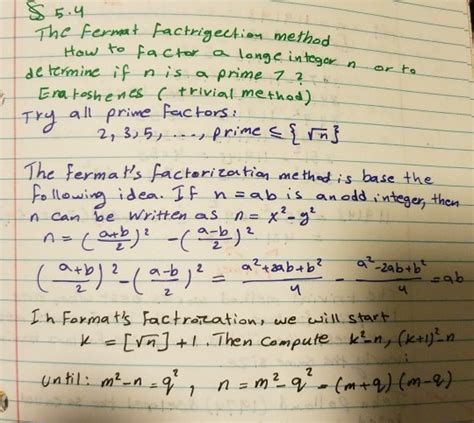 § 5.4
The Fermat Factrigection method
How to factor a longe integer n or to
determine if n is a prime 7 ?
Eratoshenes ( trivial method)
Try all prime factors:
2, 3, 5, ..., prime ≤ {√n}
The Fermat's factorization method is base the
following idea. If n = ab is an odd integer, then
n can be written as n = x² - y²
n = (a+b/2)² - (a-b/2)²
(a+b/2)² - (a-b/2)² = a²+2ab+b²/4 - a²-2ab+b²/4 = ab
In Format's Factrozation, we will start
k = [√n] + 1. Then Compute k²-n, (k+1)²-n
until: m²-n = q², n = m² - q² = (m+q) (m-q)